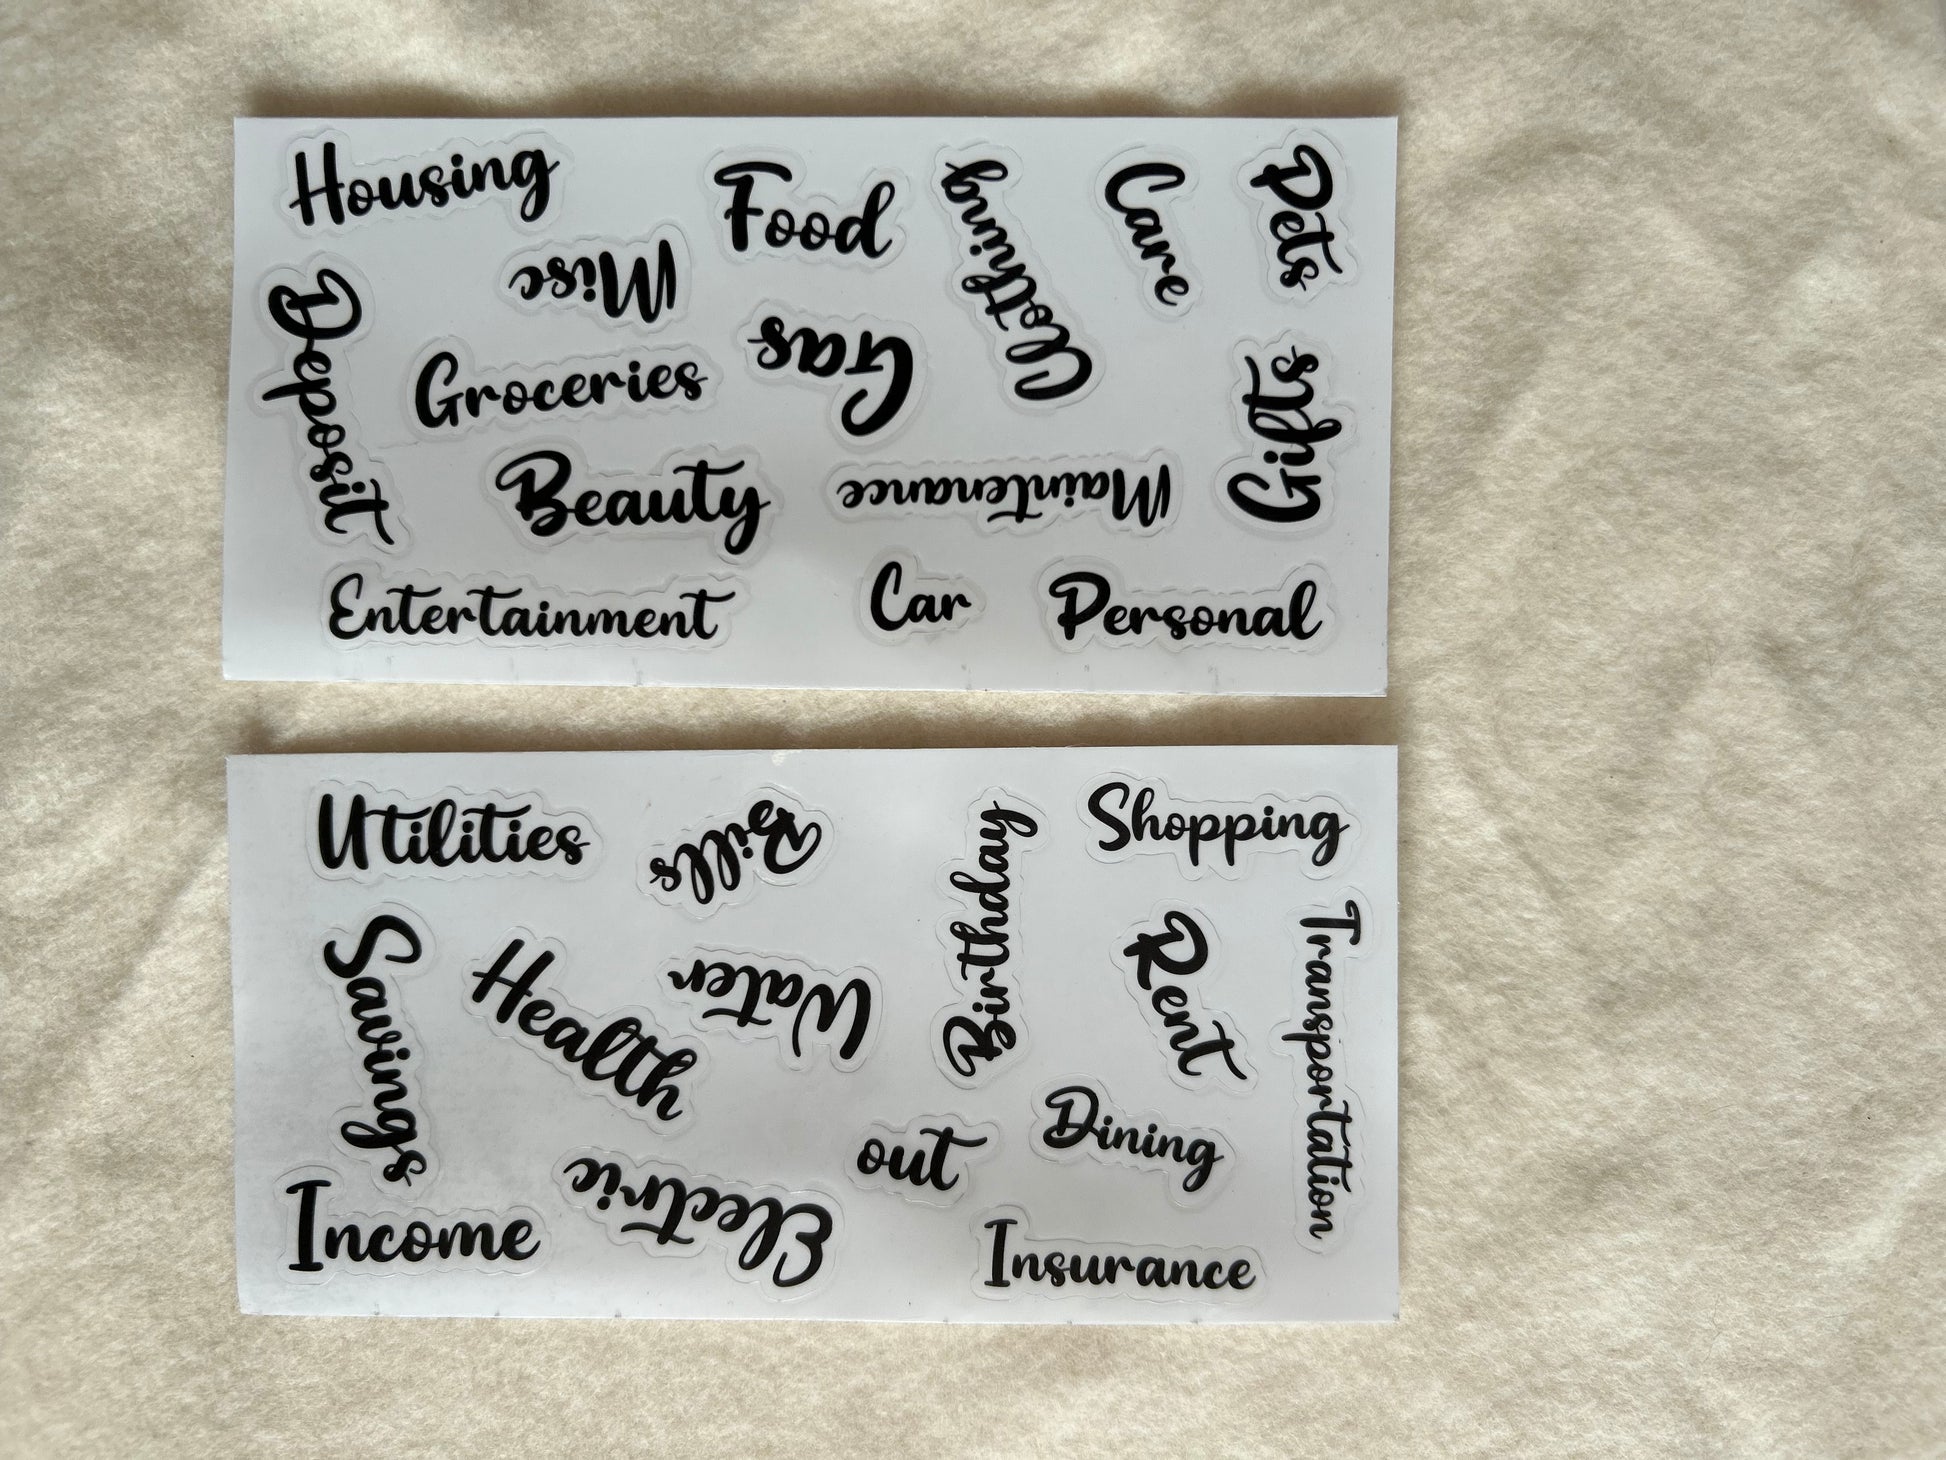 Housing
Food
Clothing
Care
Pets
Misc
Deposit
Groceries
Gas
Gifts
Beauty
Maintenance
Entertainment
Car
Personal
Utilities
Bills
Birthday
Shopping
Savings
Health
Water
Rent
Transportation
Dining
out
Electric
Income
Insurance